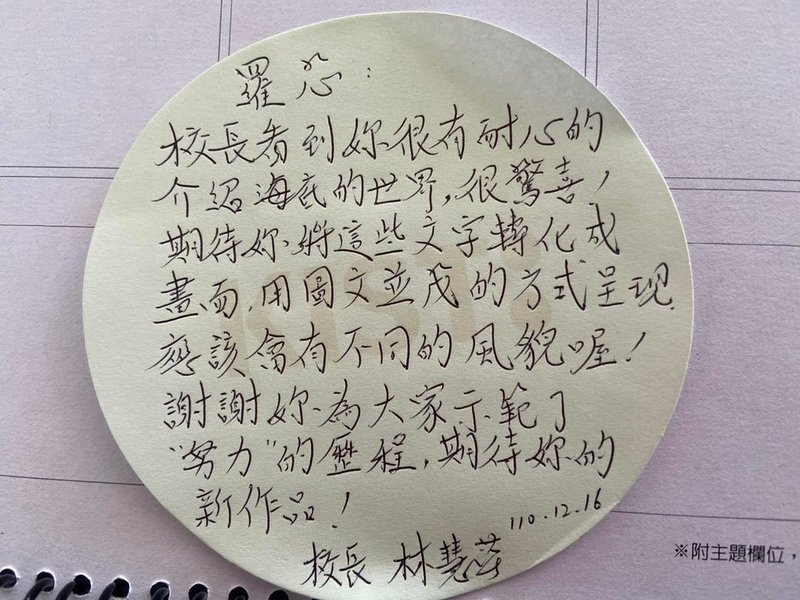 羅
校長看到妳很有耐心的
介紹海底的世界,很驚喜!
期待妳將這些文字轉化成
畫面,用圖文並茂的方式呈現
應該會有不同的風貌喔!
謝謝妳為大家示範了
"努力"的歷程,期待妳的
新作品!
110.12.16
校長 林慧
※附主題欄位,